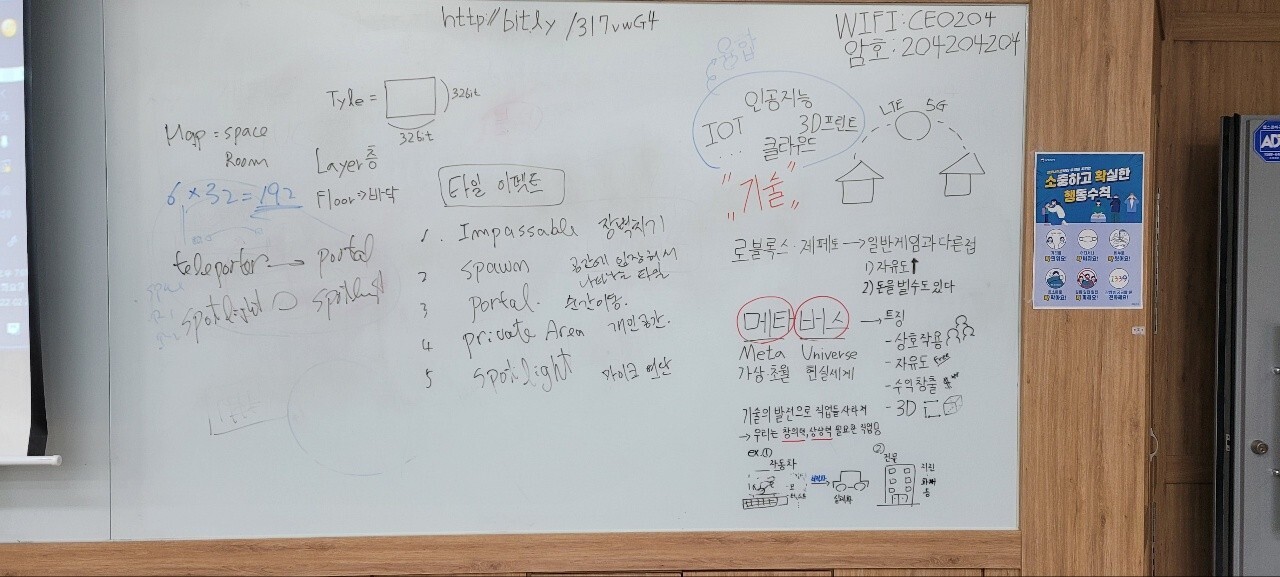 http://bit.ly/317vwG4
WIFI: CEO204
암호: 204204204
Tyle =
32bit
32bit
Map = space
Room
Layer층
Floor → 바닥
6 × 32 = 192
teleporter → portal
spotlight → spotlight
타일 이펙트
1. Impassable 장벽치기
2 spawn 공간에 입장해서
나타나는 타일
3 portal. 순간이동.
4 private Area 개인공간.
5 spotlight 마이크 연단
융합
인공지능
IOT
3D프린트
...
클라우드
"기술"
LTE 5G
로블록스·제페토 → 일반게임과 다른점
1) 자유도↑
2) 돈을 벌수도 있다
메타버스 → 특징
Meta Universe
가상·초월 현실세계
- 상호작용
- 자유도 free
- 수익창출
- 3D
기술의 발전으로 직업들 사라져
→ 우리는 창의력, 상상력 필요한 직업
ex.①
자동차
실제차
②
건물
지진
화재
등
소중하고 확실한
행동수칙
1339
ADT